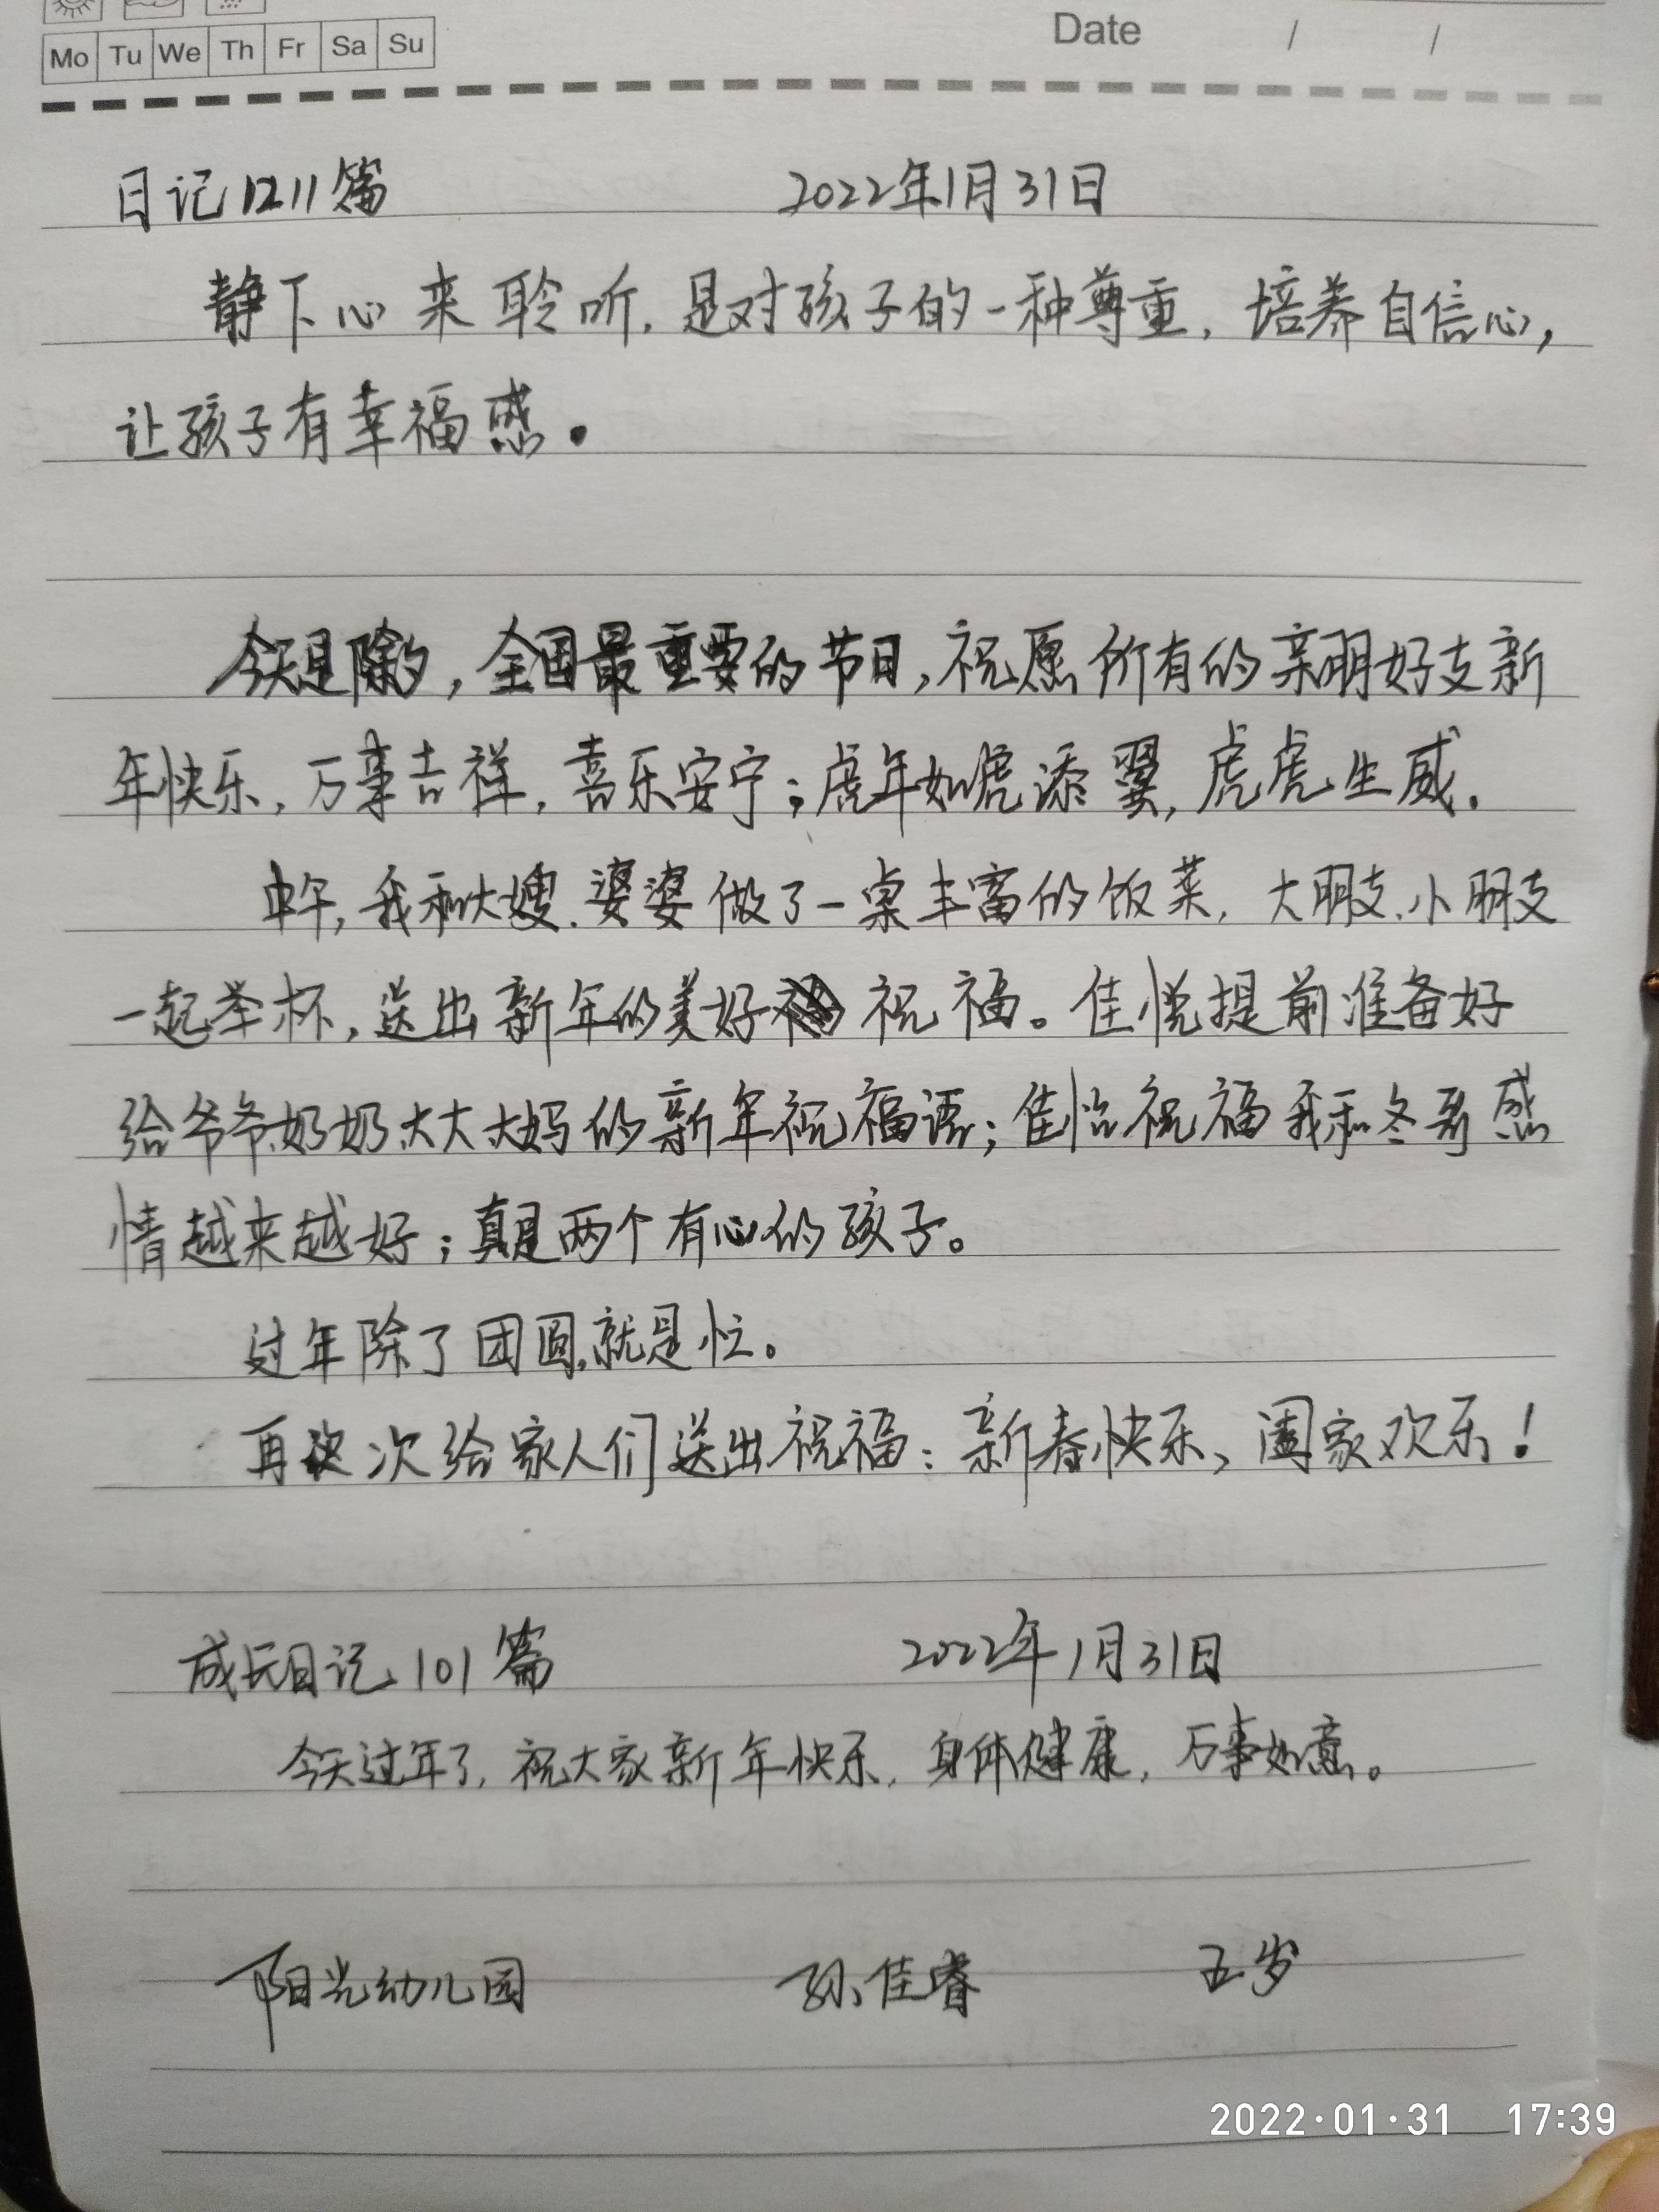 Mo Tu We Th Fr Sa Su
Date / /
日记1211篇 2022年1月31日
静下心来聆听,是对孩子的一种尊重,培养自信心,
让孩子有幸福感。
今天是除夕,全国最重要的节日,祝愿所有的亲朋好友新
年快乐,万事吉祥,喜乐安宁;虎年如虎添翼,虎虎生威.
中午,我和大嫂.婆婆做了一桌丰富的饭菜,大朋友.小朋友
一起举杯,送出新年的美好祝福。佳悦提前准备好
给爷爷.奶奶.大大大妈的新年祝福语;佳怡祝福我和冬哥感
情越来越好;真是两个有心的孩子。
过年除了团圆,就是忙。
再次给家人们送出祝福:新春快乐、阖家欢乐!
成长日记101篇 2022年1月31日
今天过年了,祝大家新年快乐,身体健康,万事如意。
阳光幼儿园 孙佳睿 五岁
2022·01·31 17:39